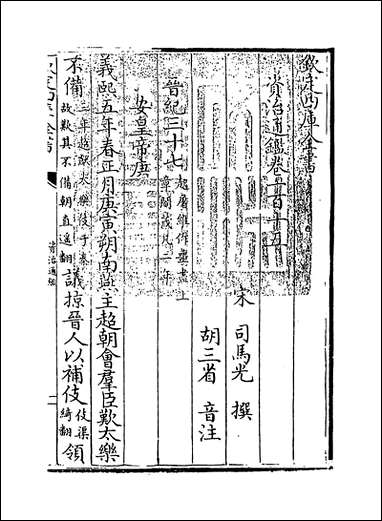 欽定四庫全書
資治通鑑卷一百十五
宋 司馬光 撰
胡三省 音注
晉紀三十七 起屠維作噩盡上章閹茂凡二年
安皇帝庚
義熙五年春正月庚寅朔南燕主超朝會羣臣歎太樂
不備 三年超獻太樂伎于秦故歎其不備朝直遙翻 議掠晉人以補伎 伎渠綺翻 領
欽定四庫全書 資治通鑑